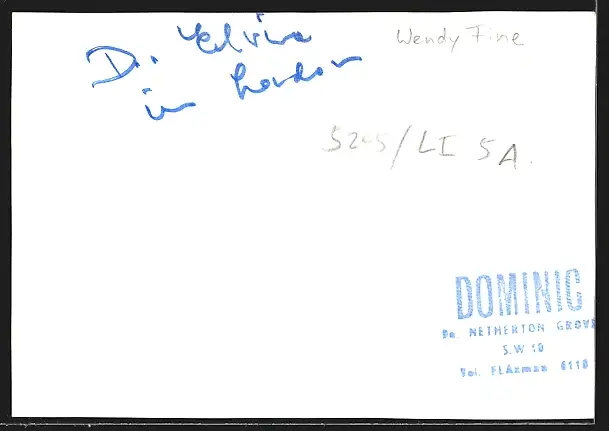 Wendy Fine
in London
5205/LI 5A.
DOMINIC
NETHERTON GROVE
S.W 10
Tel. FLAxman 6118